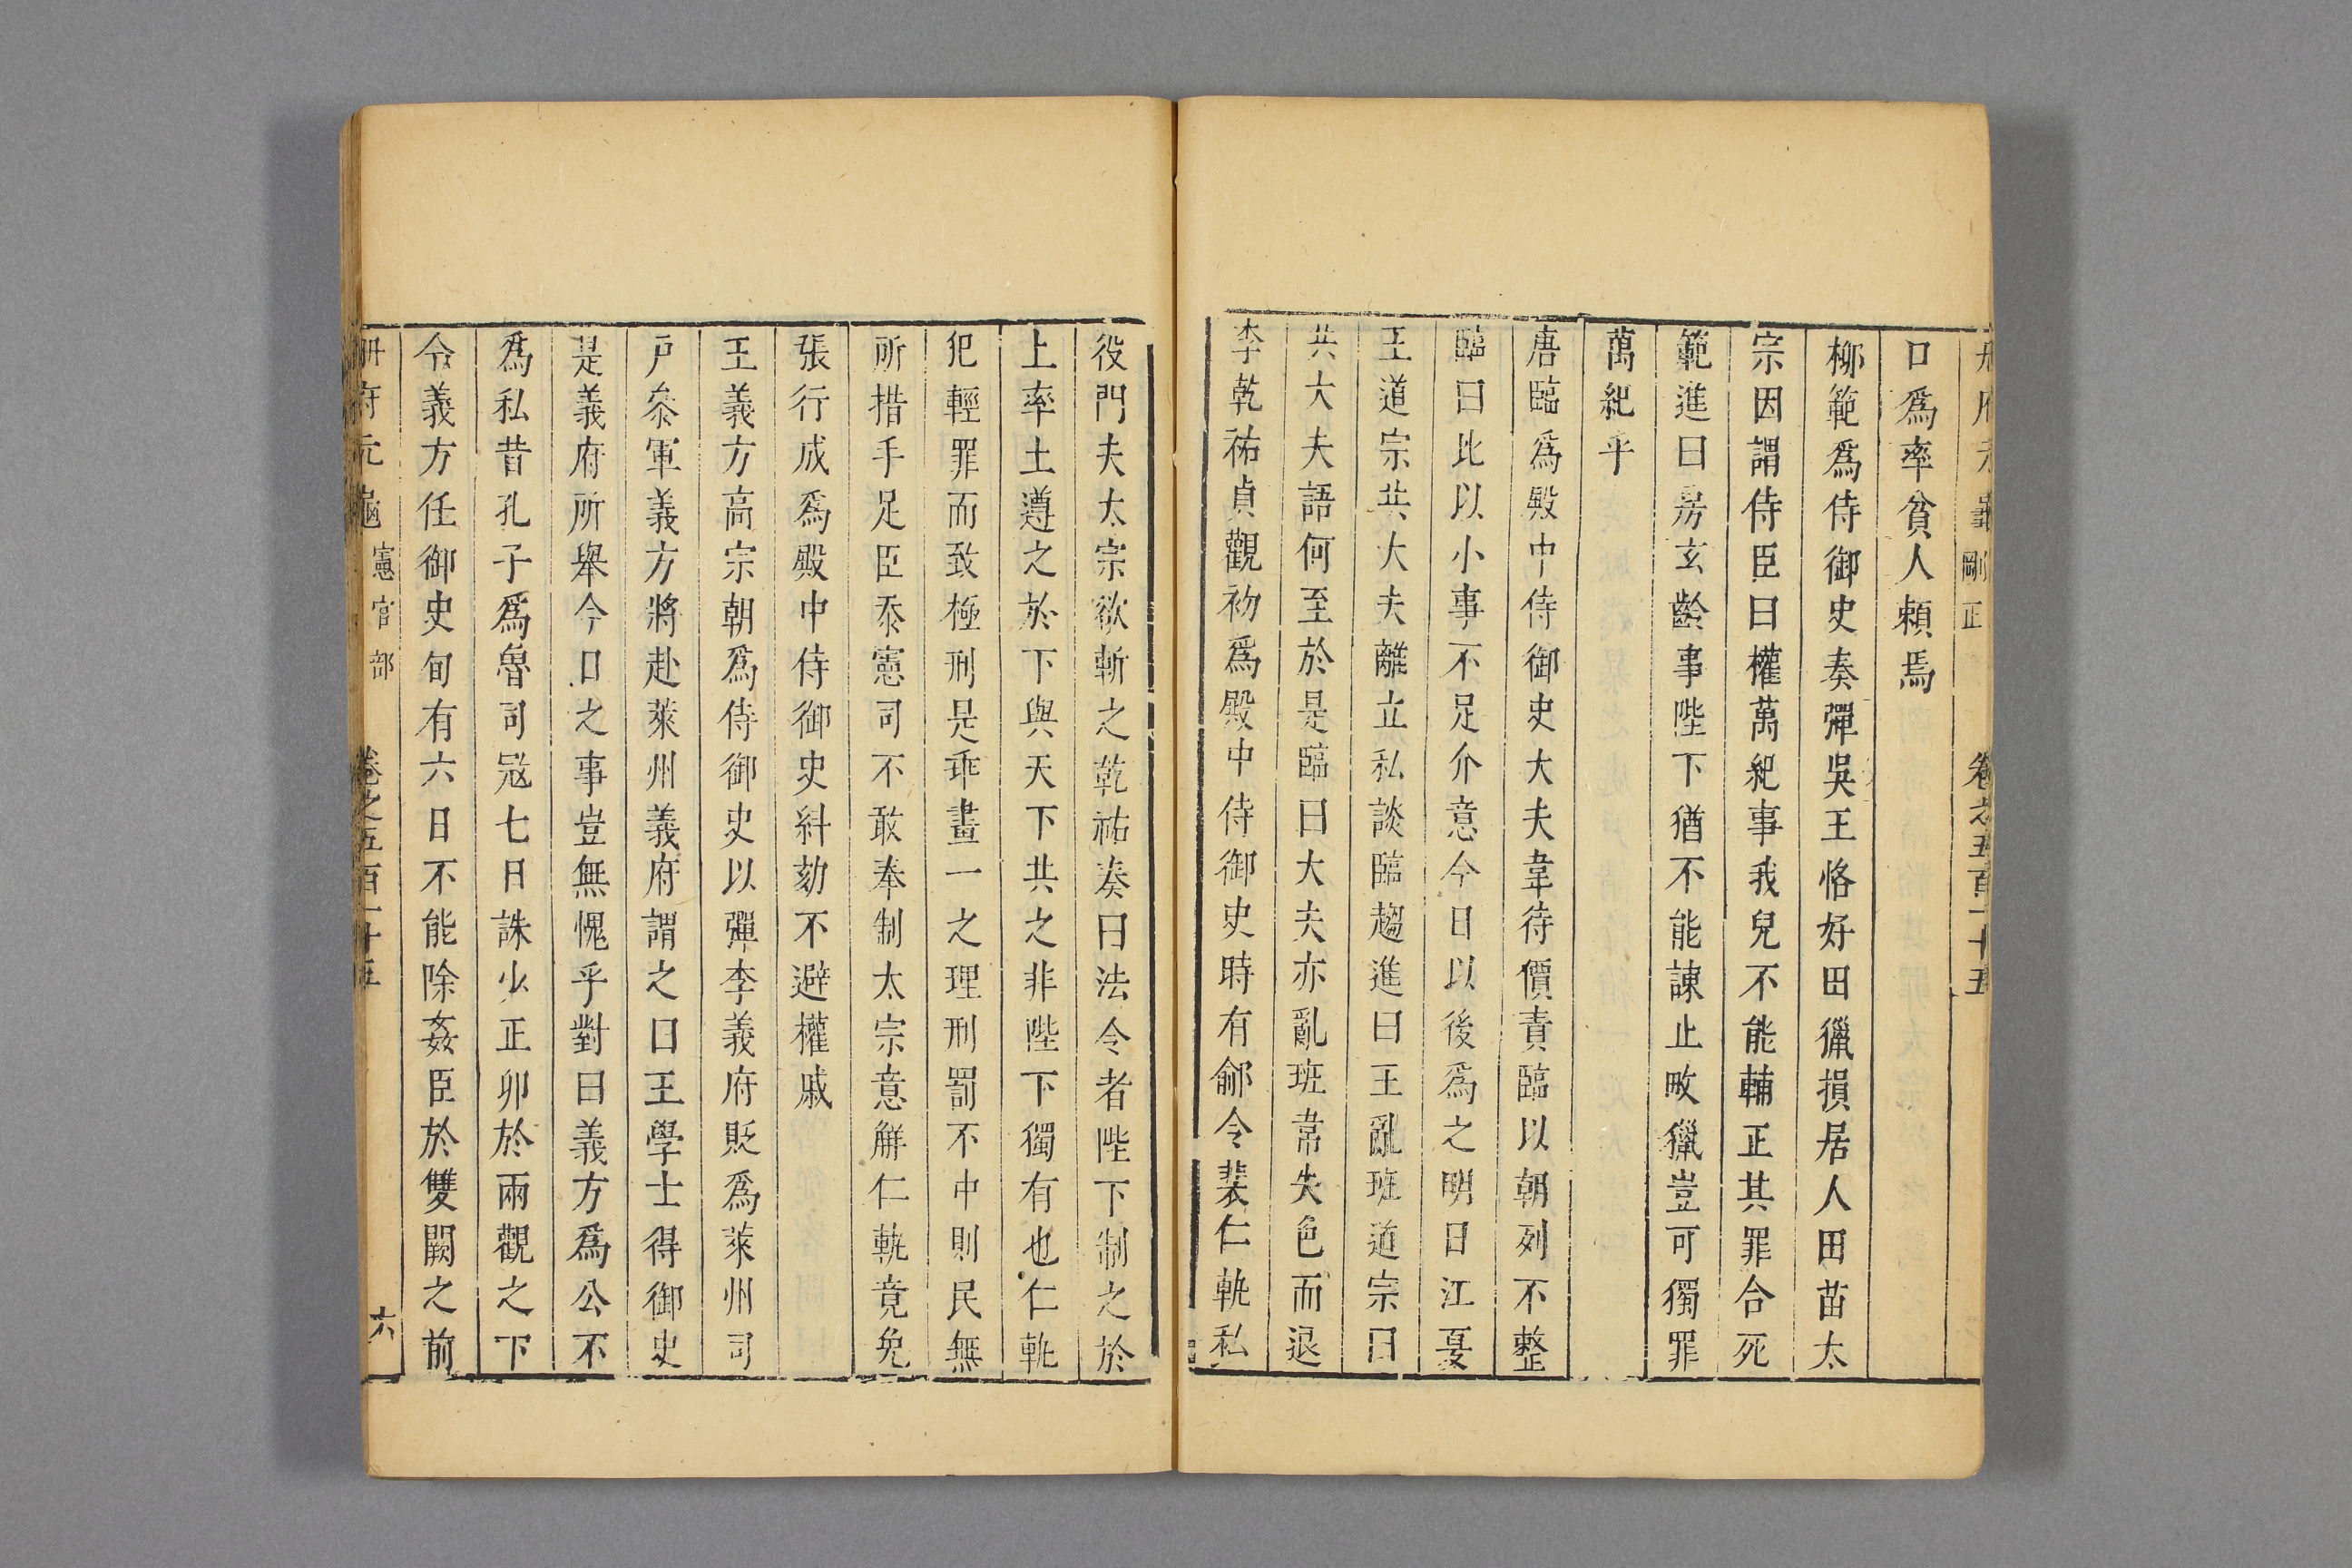 冊府元龜剛正 卷之五百一十五
口爲率貧人賴焉
柳範爲侍御史奏彈吳王恪好田獵損居人田苗太
宗因謂侍臣曰權萬紀事我兒不能輔正其罪合死
範進曰房玄齡事陛下猶不能諫止畋獵豈可獨罪
萬紀乎
唐臨爲殿中侍御史大夫韋待價責臨以朝列不整
臨曰比以小事不足介意今日以後爲之明日江夏
王道宗共大夫離立私談臨趨進曰王亂班道宗曰
共大夫語何至於是臨曰大夫亦亂班韋失色而退
李乾祐貞觀初爲殿中侍御史時有鄃令裴仁軌私
役門夫太宗欲斬之乾祐奏曰法令者陛下制之於
上率土遵之於下與天下共之非陛下獨有也仁軌
犯輕罪而致極刑是乖畫一之理刑罰不中則民無
所措手足臣忝憲司不敢奉制太宗意解仁軌竟免
張行成爲殿中侍御史糾劾不避權戚
王義方高宗朝爲侍御史以彈李義府貶爲萊州司
戸叅軍義方將赴萊州義府謂之曰王學士得御史
是義府所舉今日之事豈無愧乎對曰義方爲公不
爲私昔孔子爲魯司寇七日誅少正卯於兩觀之下
令義方任御史旬有六日不能除姦臣於雙闕之前
冊府元龜憲官部 卷之五百一十五 六